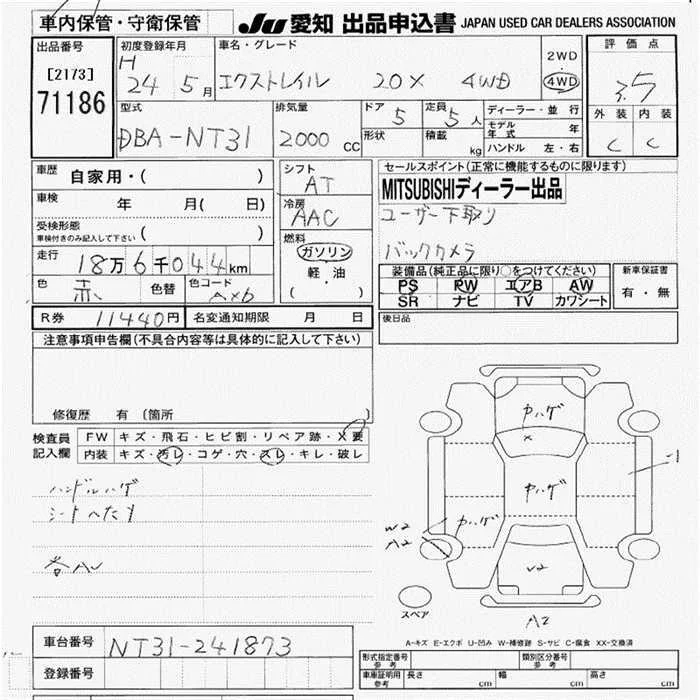 車内保管・守衛保管
JU 愛知 出品申込書 JAPAN USED CAR DEALERS ASSOCIATION
出品番号
[2173]
71186
初度登録年月
H 24 5月
車名・グレード
エクストレイル 20X 4WD
2WD
4WD
評価点
3.5
外装 内装
C C
型式
DBA-NT31
排気量
2000 CC
ドア 5
形状
定員 5人
積載 kg
ディーラー・並行
モデル年式 年
ハンドル 左・右
車歴 自家用・( )
車検 年 月( 日)
受検形態
車検付きのみ記入して下さい ( )
走行 18万6千044km
色 赤 色替 色コード AX6
シフト
AT
冷房
AAC
燃料
ガソリン
軽・油
( )
セールスポイント(正常に機能するものに限ります)
MITSUBISHIディーラー出品
ユーザー下取り
バックカメラ
装備品(純正品に限り○をつけてください)
PS PW エアB AW
SR ナビ TV カワシート
新車保証書
有・無
R券 11440円 名変通知期限 月 日
後日品
注意事項申告欄(不具合内容等は具体的に記入して下さい)
修復歴 有(箇所 )
検査員記入欄
FW キズ・飛石・ヒビ割・リペア跡・X要
内装 キズ・汚レ・コゲ・穴・スレ・キレ・破レ
ハンドルハゲ
シートへたり
カハゲ
X
カハゲ
カハゲ
W2
A2
V2
A2
スペア
A-キズ E-エクボ U-凹み W-補修跡 S-サビ C-腐食 XX-交換済
車台番号 NT31-241873
登録番号
形式指定番号 参考
類別区分番号 参考
車庫証明用 参考 長さ cm 幅 cm 高さ cm